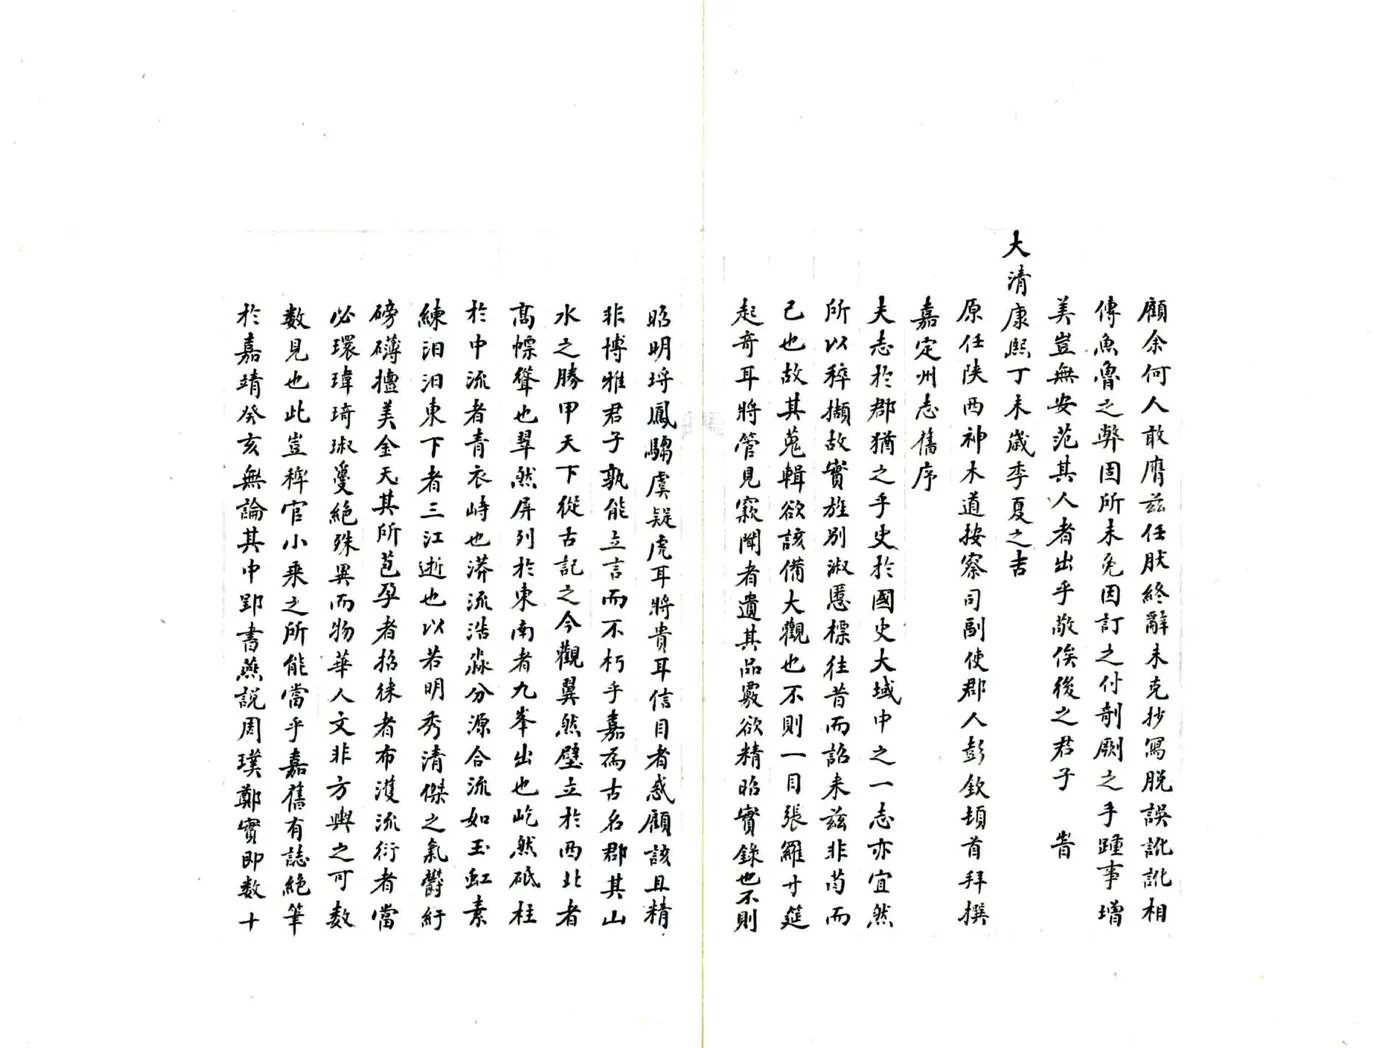 顧余何人敢膺茲任朕終辭未克抄寫脫誤訛訛相
傳魚魯之弊固所未免因訂之付剞劂之手踵事增
美豈無安范其人者出乎敬俟後之君子 旹
大清康熙丁未歲季夏之吉
原任陕西神木道按察司副使郡人彭欽頓首拜撰
嘉定州志舊序
夫志於郡猶之乎史於國史大域中之一志亦宜然
所以稡擷故實旌別淑慝標往昔而詔来茲非茍而
已也故其蒐輯欲該備大觀也不則一目張羅寸筳
起奇耳將管見窾聞者遺其品覈欲精昭實錄也不則
昭明琈鳳騶虞疑虎耳將貴耳信目者惑顧該且精
非博雅君子孰能立言而不朽乎嘉為古名郡其山
水之勝甲天下從古記之今觀翼然壁立於西北者
高幖聳也翠然屏列於東南者九峯出也屹然砥柱
於中流者青衣峙也漭流浩淼分源合流如玉虹素
練汨汨東下者三江逝也以若明秀清傑之氣欝紆
磅礴擅美金天其所苞孕者招徠者布濩流衍者當
必環瑋琦淑敻絕殊異而物華人文非方輿之可数
數見也此豈稗官小乘之所能當乎嘉舊有誌絕筆
於嘉靖癸亥無論其中郢書燕說周璞鄭實即数十